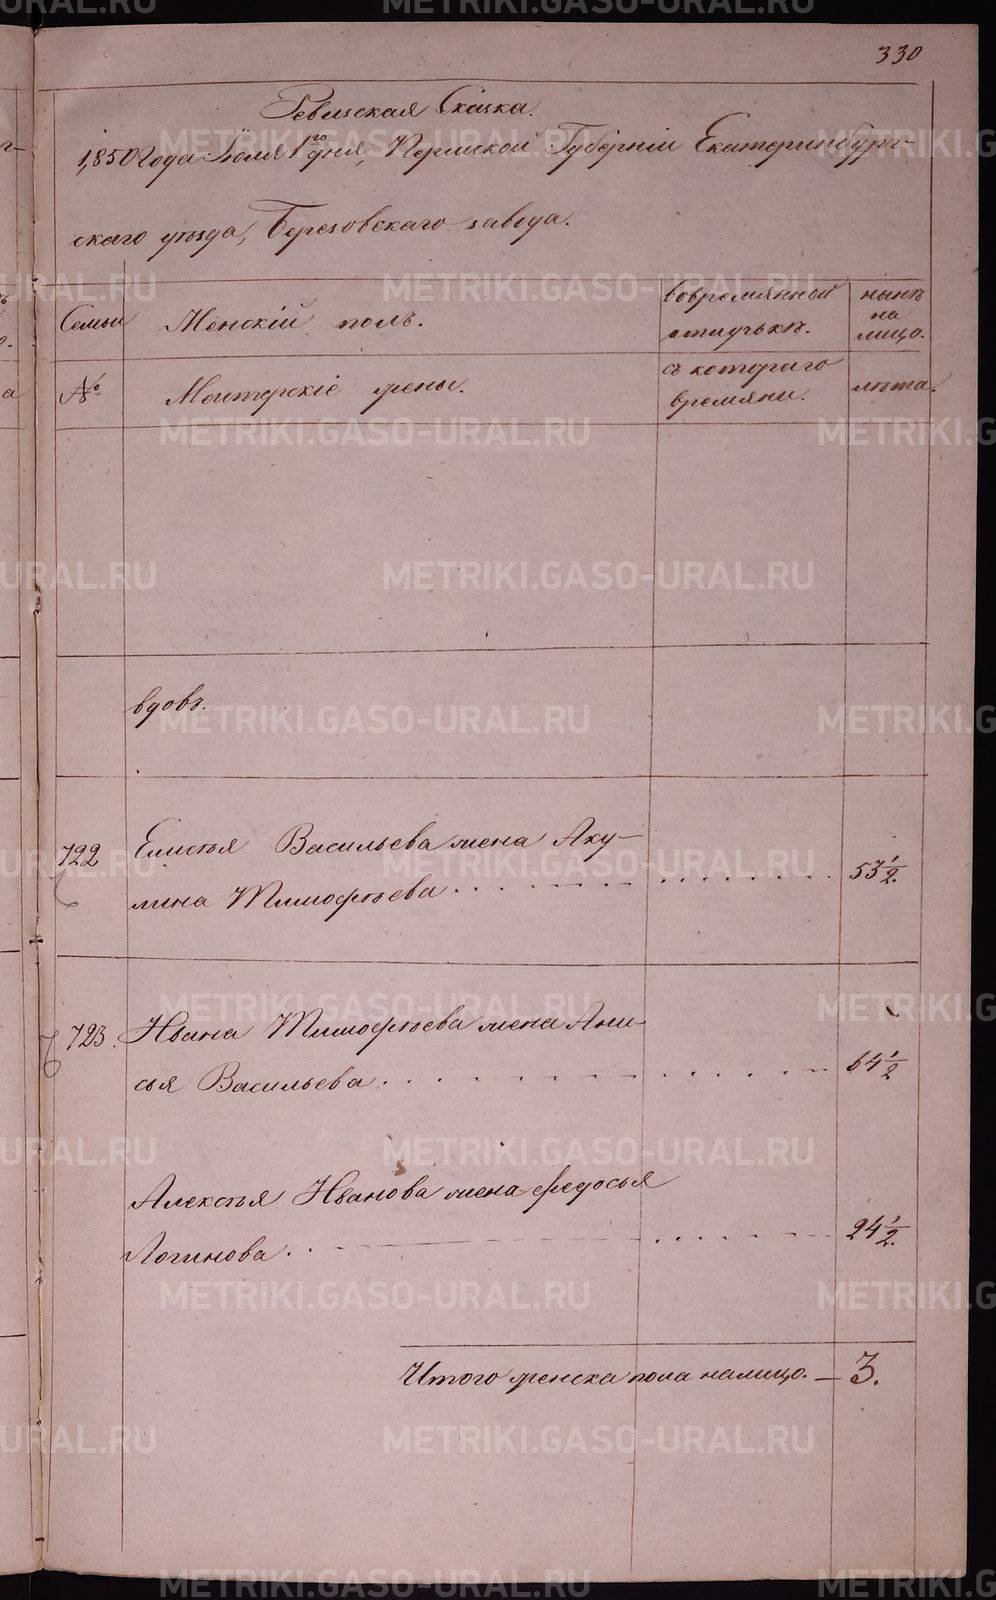 330
Ревизская Сказка.
1850 Года Іюля 1го дня, Пермской Губерніи Екатеринбург-
скаго уѣзда, Березовскаго завода.
Семьи
Женскій полъ.
вовремянной
отлучькѣ.
нынѣ
на
лицо.
№
Мастерскіе жены.
съ котораго
времяни.
лѣта.
вдовъ.
722
Елисѣя Васильева жена Аку-
лина Тимофѣева
53 1/2.
723.
Ивана Тимофѣева жена Ани-
сья Васильева
64 1/2
Алексѣя Иванова жена федосья
Логинова
24 1/2.
Итого женска пола налицо. — 3.
METRIKI.GASO-URAL.RU